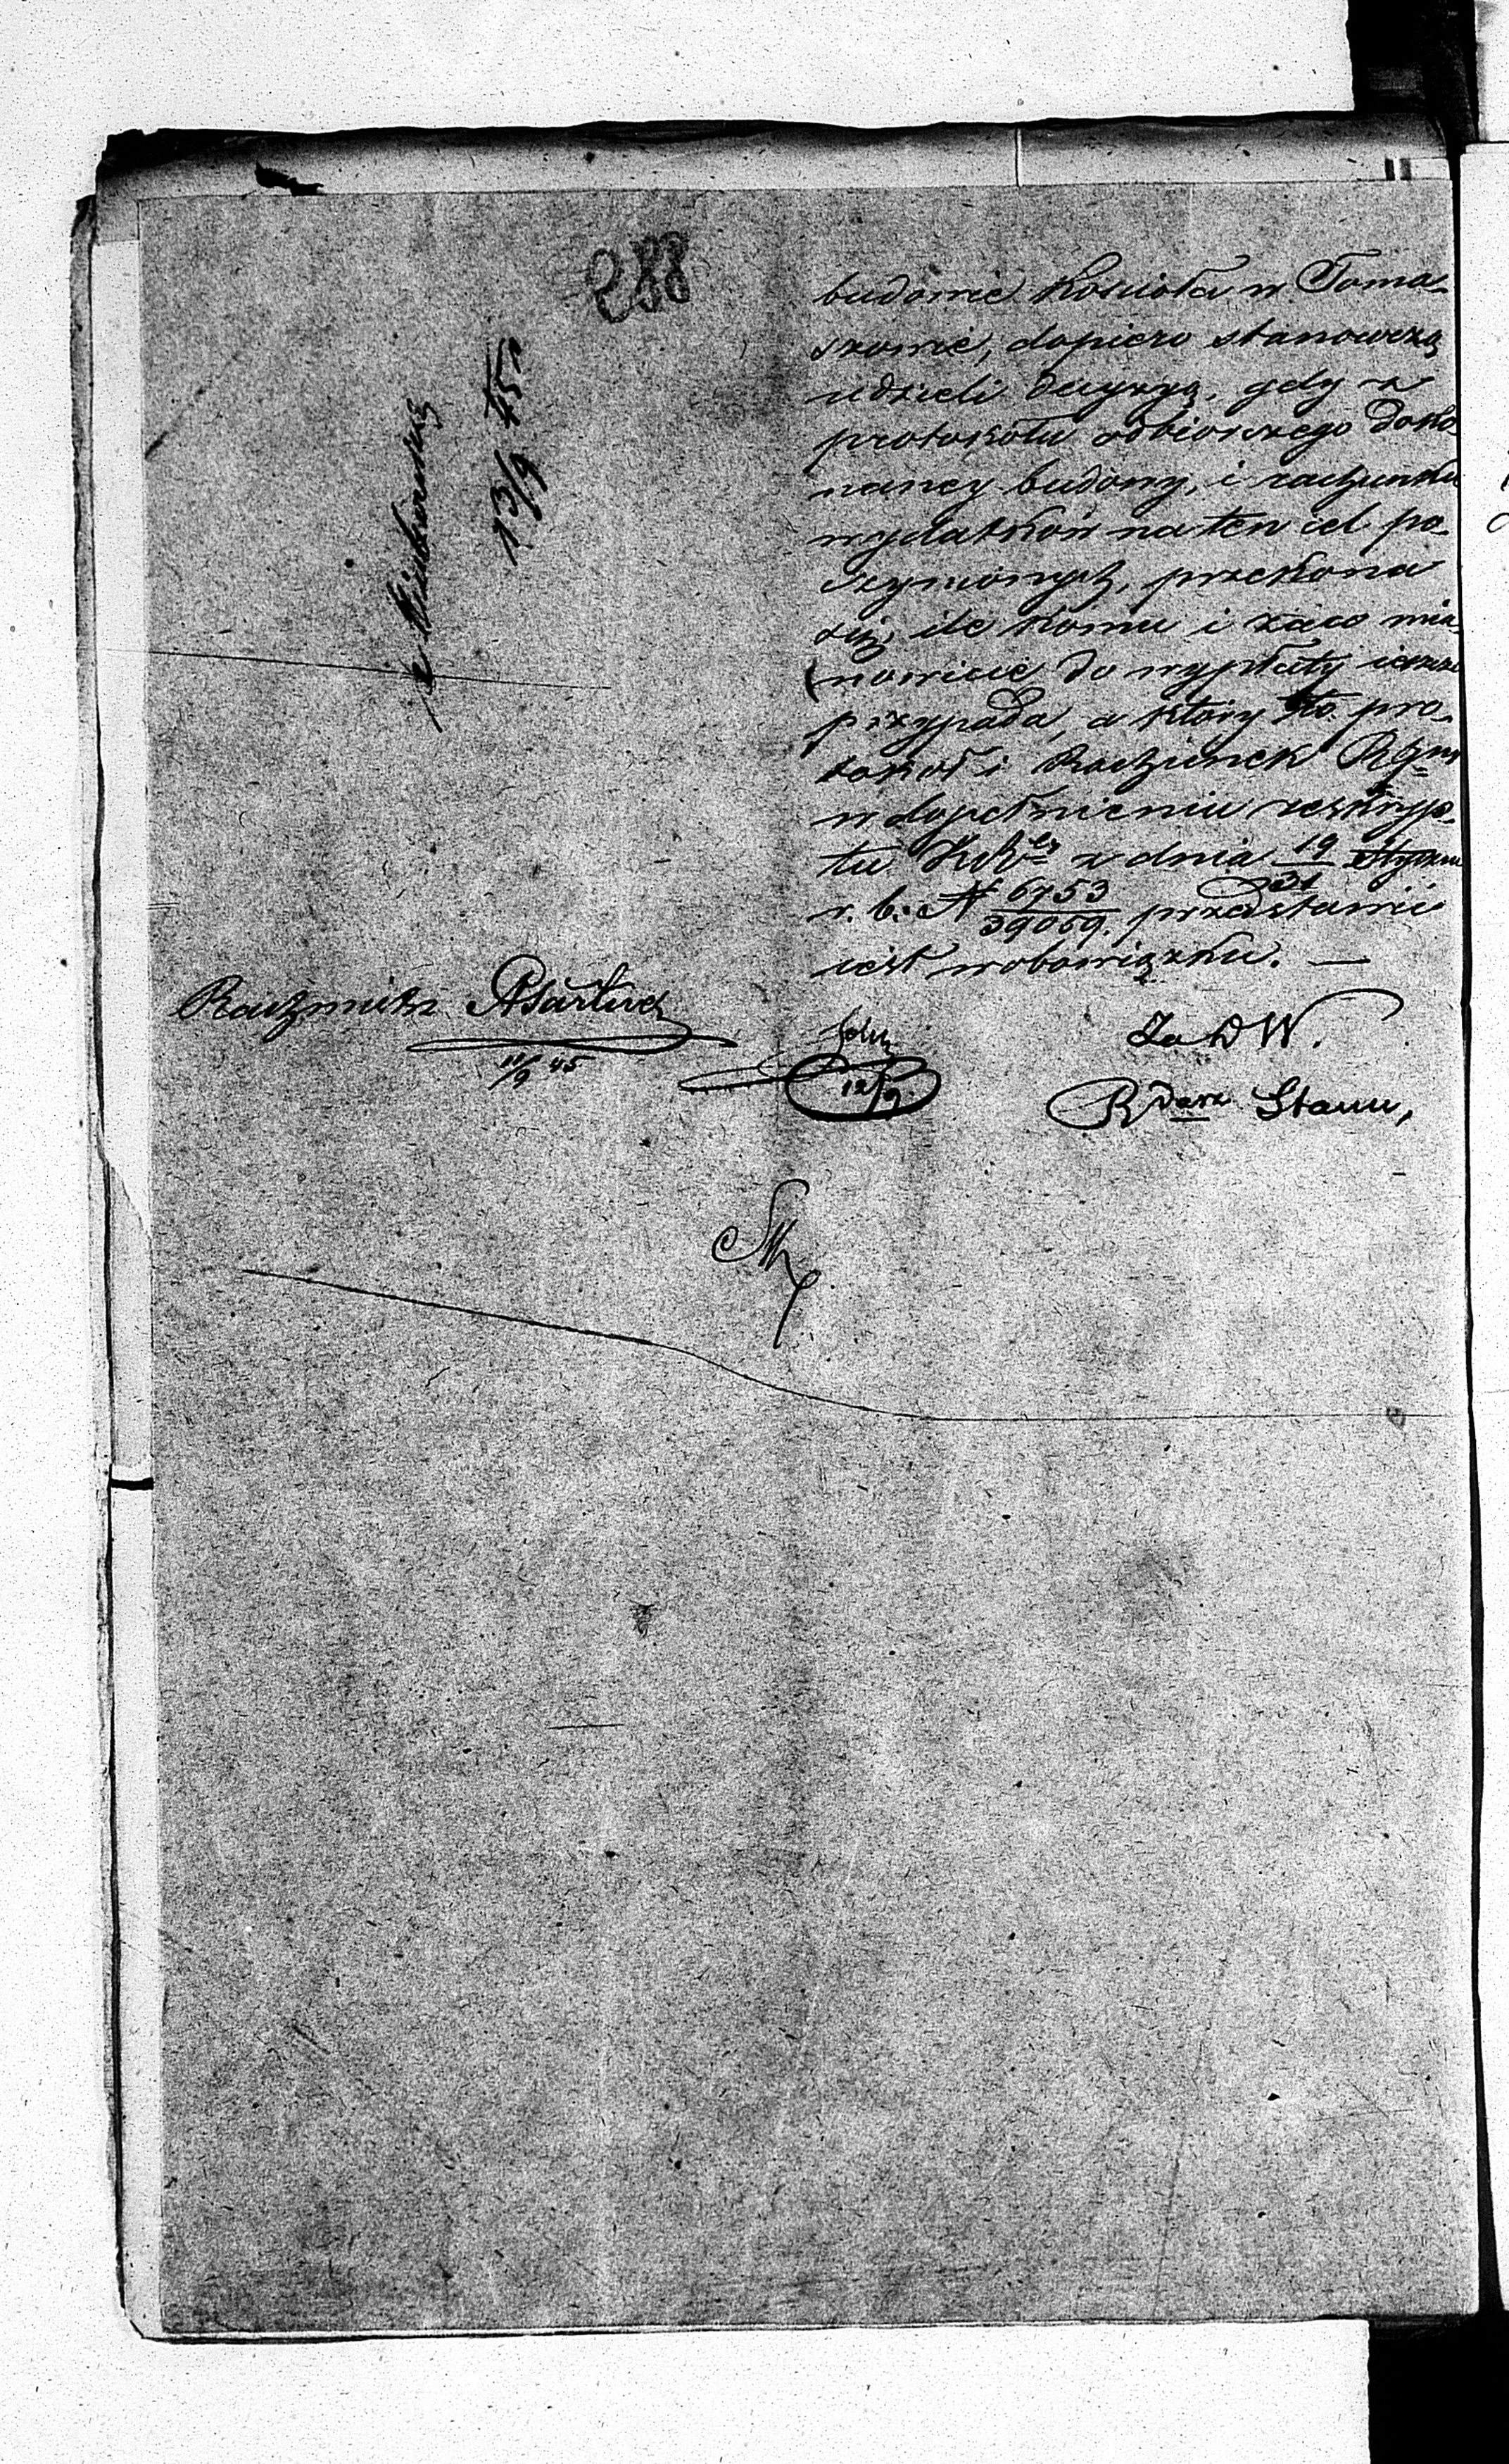 288
budowie Kościoła w Toma-
szowie, dopiero stanowczą
udzieli decyzyą, gdy z
protokółu odbiorczego doko-
naney budowy, i rachunku
wydatków na ten cel po-
czynionych, przekona
się, ile komu i za co mia-
nowicie do wypłaty ieszcze
przypada, a który to pro-
tokół i Rachunek
w dopełnieniu reskryp-
tu z dnia 19/31 Styczn
r. b. N 6753/39059. przedstawić
iest w obowiązku. —
13/9 45
Rachmistrz
11/9 45
12/9
Za D W.
Rdarz Stanu,